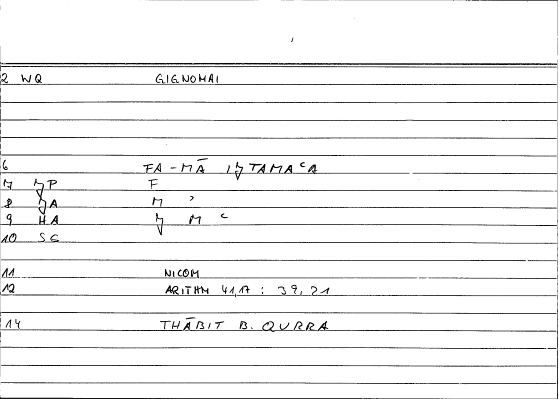 2 WQ GIGNOMAI
6 FA-MĀ
7 F
8 M ʾ
9 HA M ʿ
10 SE
11 NICOM
12 ARITHM 41,17 : 39,21
14 THĀBIT B. QURRA